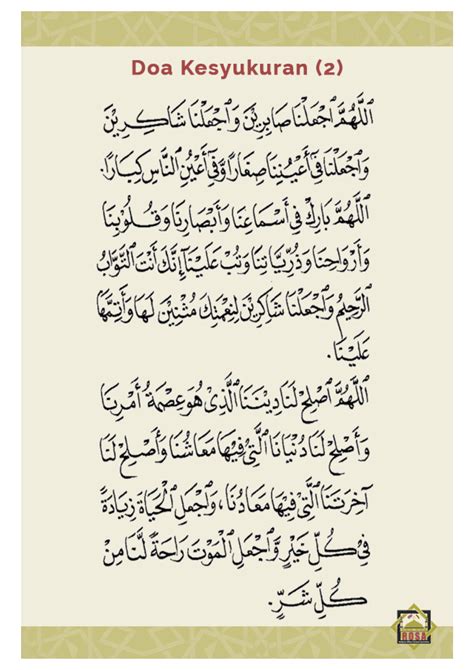 Doa Kesyukuran (2)
اَللَّهُمَّ اجْعَلْنَا صَابِرِيْنَ وَاجْعَلْنَا شَاكِرِيْنَ
وَاجْعَلْنَا فِى أَعْيُنِنَا صِغَارًا وَّفِى أَعْيُنِ النَّاسِ كِبَارًا.
اَللَّهُمَّ بَارِكْ فِى أَسْمَاعِنَا وَأَبْصَارِنَا وَقُلُوْبِنَا
وَأَرْوَاحِنَا وَذُرِّيَّاتِنَا وَتُبْ عَلَيْنَا إِنَّكَ أَنْتَ التَّوَّابُ
الرَّحِيْمُ وَاجْعَلْنَا شَاكِرِيْنَ لِنِعْمَتِكَ مُثْنِيْنَ لَهَا وَأَتِمَّهَا
عَلَيْنَا.
اَللَّهُمَّ اَصْلِحْ لَنَا دِيْنَنَا الَّذِى هُوَ عِصْمَةُ أَمْرِنَا
وَأَصْلِحْ لَنَا دُنْيَانَا الَّتِى فِيْهَا مَعَاشُنَا وَأَصْلِحْ لَنَا
آخِرَتَنَا الَّتِى فِيْهَا مَعَادُنَا، وَاجْعَلِ الْحَيَاةَ زِيَادَةً
فِى كُلِّ خَيْرٍ وَّاجْعَلِ الْمَوْتَ رَاحَةً لَّنَا مِنْ
كُلِّ شَرٍّ.
ROSA